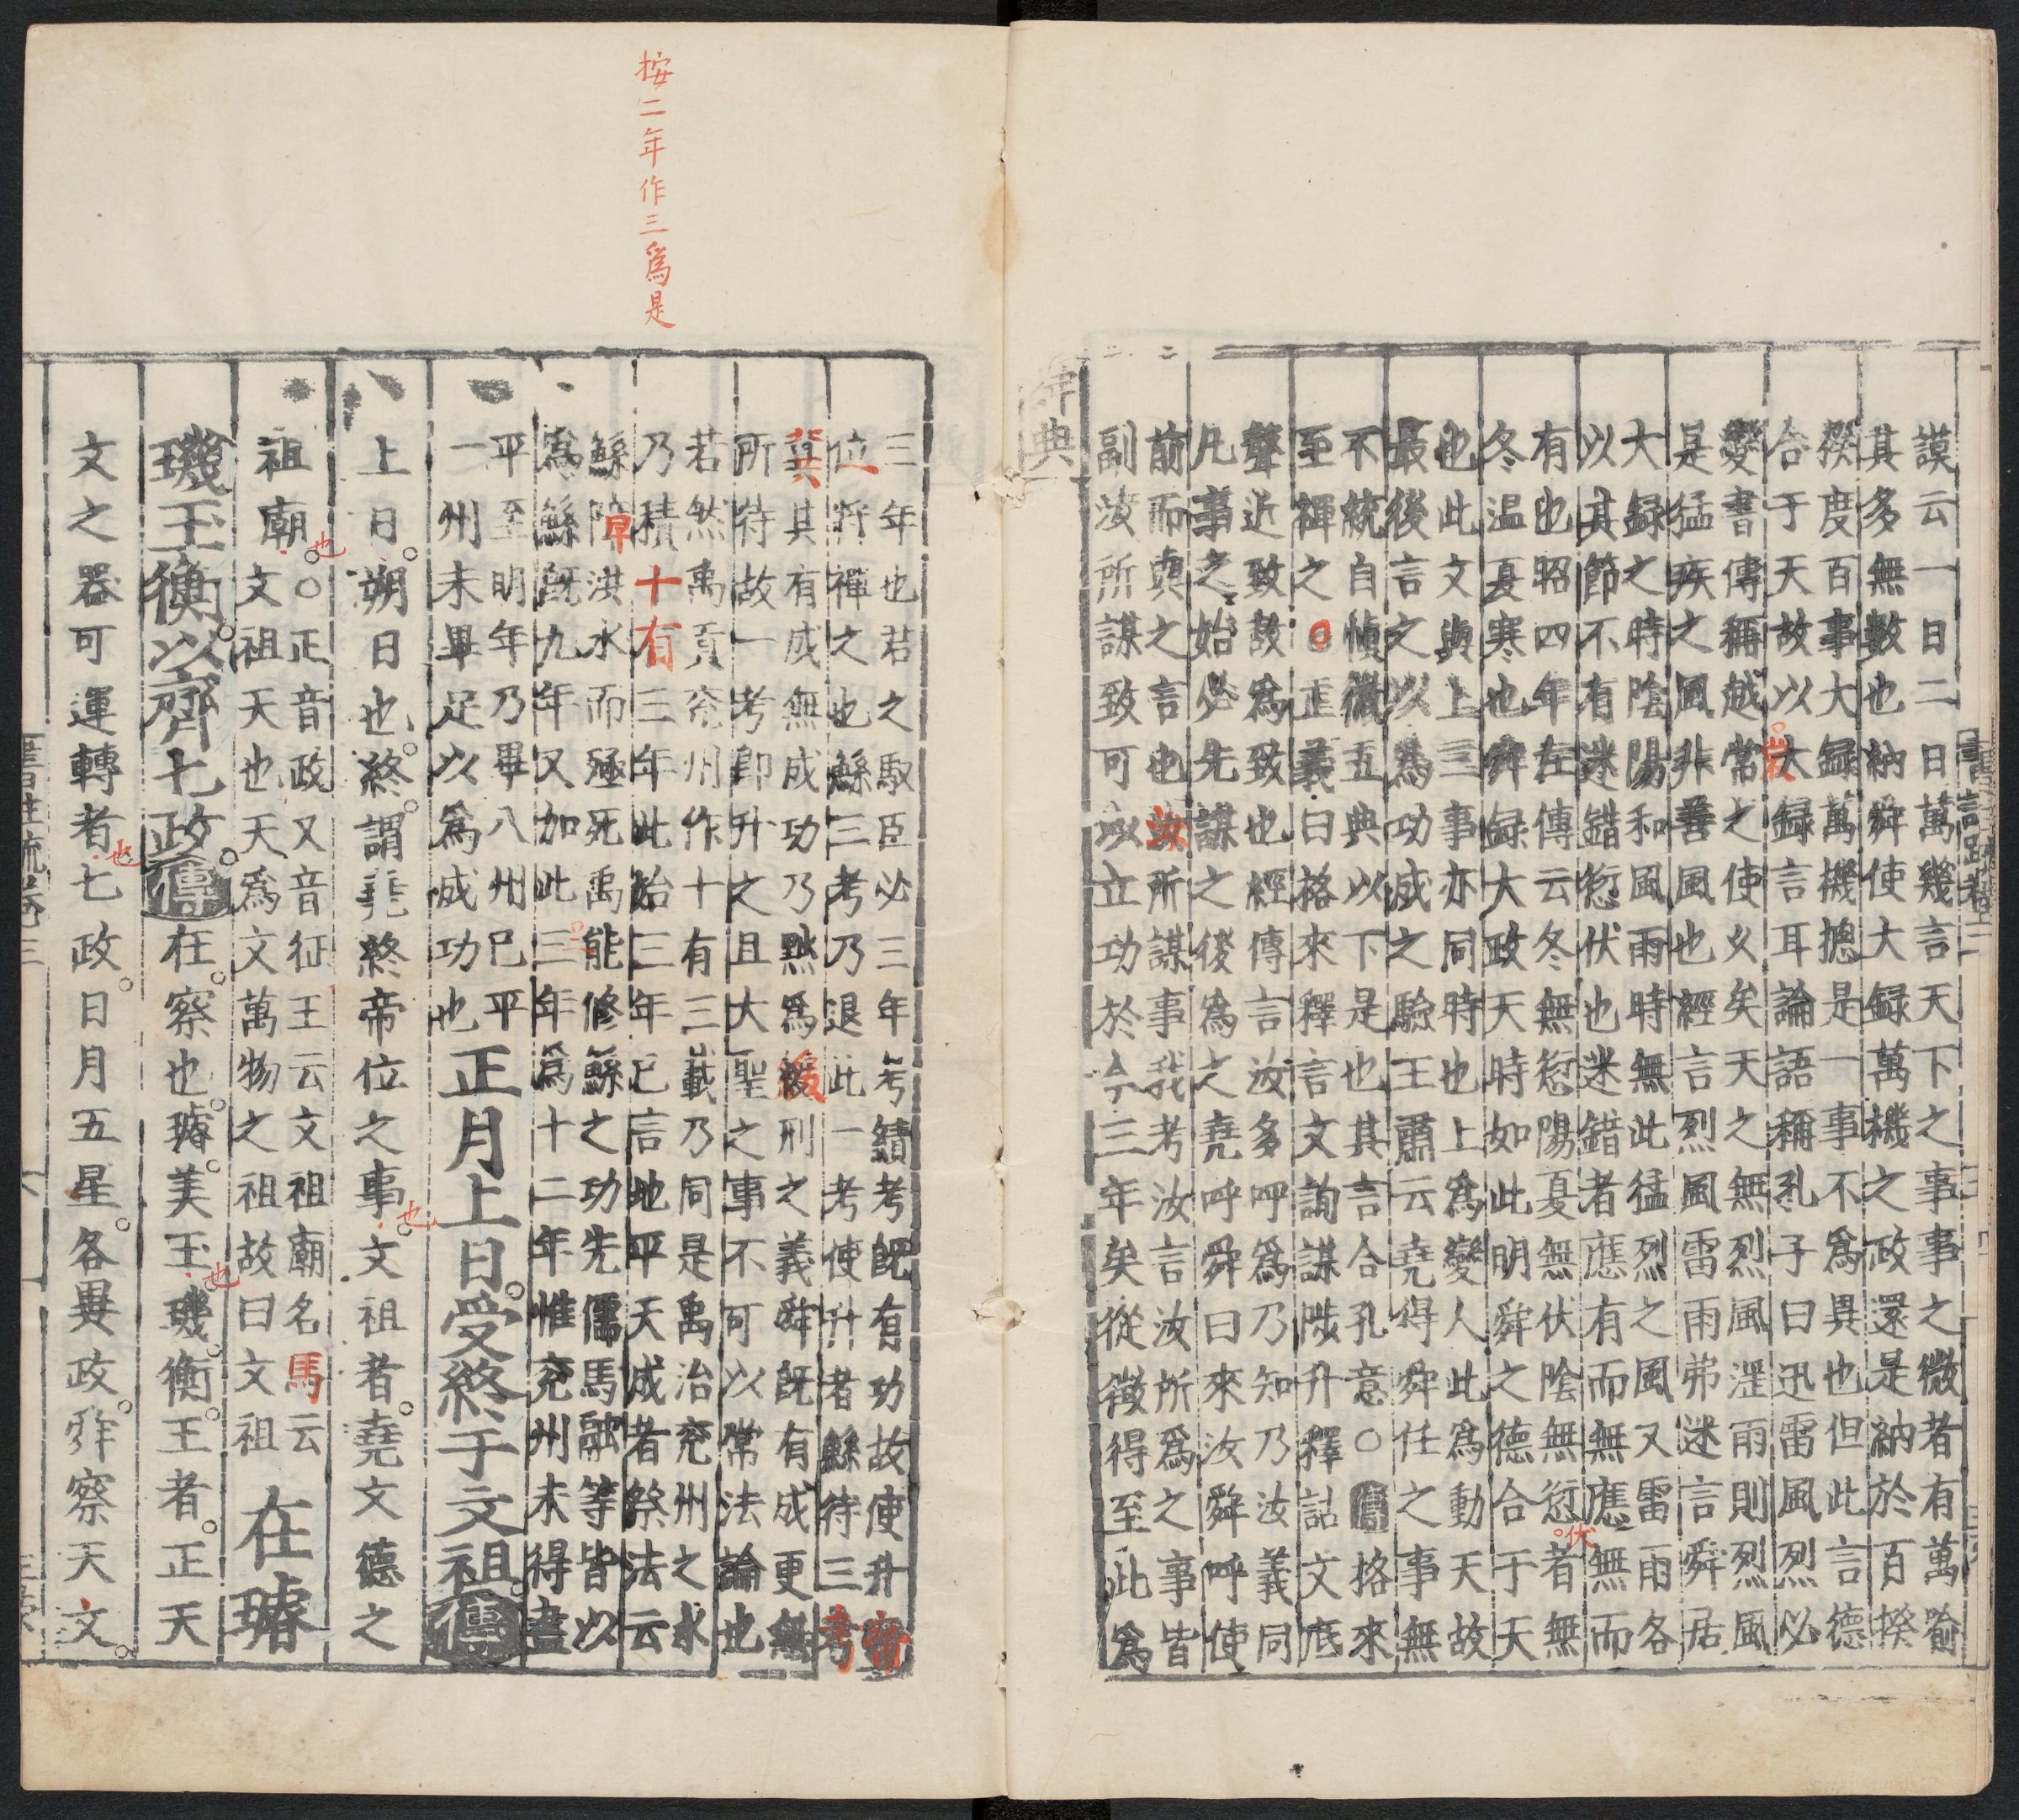 謨云一日二日萬幾言天下之事事之微者有萬喻
其多無數也納舜使大録萬機之政還是納於百揆
揆度百事大録萬機揔是一事不爲異也但此言德
合于天故以大録言耳論語稱孔子曰迅雷風烈必
變書傳稱越常之使久矣天之無烈風淫雨則烈風
是猛疾之風非善風也經言烈風雷雨弗迷言舜居
大録之時陰陽和風雨時無此猛烈之風又雷雨各
以其節不有迷錯愆伏也迷錯者應有而無應無而
有也昭四年左傳云冬無愆陽夏無伏陰無愆者無
冬温夏寒也舜録大政天時如此明舜之德合于天
也此文與上三事亦同時也上爲變人此爲動天故
最後言之以爲功成之驗王肅云堯得舜任之事無
不統自慎徽五典以下是也其言合孔意○傳格來
至禪之○正義曰格來釋言文詢謀陟升釋詁文厎
聲近致故爲致也經傳言汝多呼爲乃知乃汝義同
凡事之始必先謀之後爲之堯呼舜曰來汝舜呼使
前而與之言也汝所謀事我考汝言汝所爲之事皆
副汝所謀致可以立功於今三年矣從徵得至此爲
典
三年也君之馭臣必三年考績考既有功故使升帝
位將禪之也鯀三考乃退此一考使升者鯀待三考
冀其有成無成功乃黜爲緩刑之義舜既有成更無
所待故一考即升之且大聖之事不可以常法論也
若然禹貢兖州作十有三載乃同是禹治兖州之水
乃積十有三年此始三年已言地平天成者祭法云
鯀障洪水而殛死禹能修鯀之功先儒馬融等皆以
爲鯀既九年又加此三年爲十二年惟兖州未得盡
平至明年乃畢八州已平
一州未畢足以爲成功也
正月上日受終于文祖傳
上日朔日也終謂堯終帝位之事也文祖者堯文德之
祖廟也○正音政又音征王云文祖廟名馬云
文祖天也天爲文萬物之祖故曰文祖
在璿
璣玉衡以齊七政傳在察也璿美玉也璣衡王者正天
文之器可運轉者也七政日月五星各異政舜察天文
按二年作三爲是